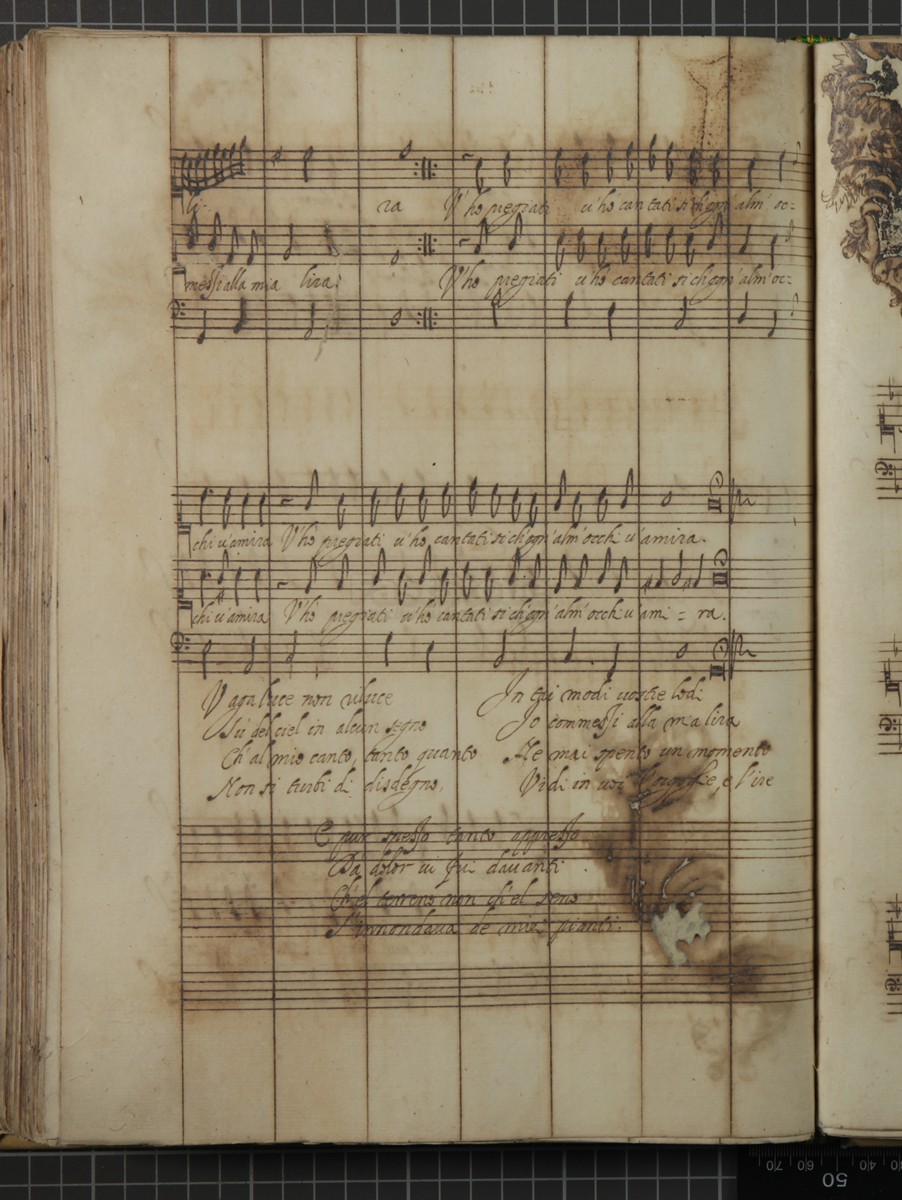 li- ra V'ho pregiati v'ho cantati si ch'ogn'alm' oc:
messi alla mia lira: V'ho pregiati v'ho cantati si ch'ogn'alm'oc:
chi v'amira V'ho pregiati v'ho cantati si ch'ogn'alm'occhi v'amira.
chi v'amira V'ho pregiati v'ho cantati si ch'ogn'alm'occhi v'ami = ra.
Vaga luce non riluce
Sù del ciel in alcun segno
Ch'al mio canto, tanto quanto
Non si turbi di disdegno,
In tai modi vostre lodi
Io commessi alla mia lira
Ne mai spento un momento
Vidi in voi l'orgoglio, e l'ire
E pur spesso tanto appresso
Da dolor vi fui davanti
Ch'el terreno non ch'el seno
S'innondava de miei pianti.
50
40
60
70